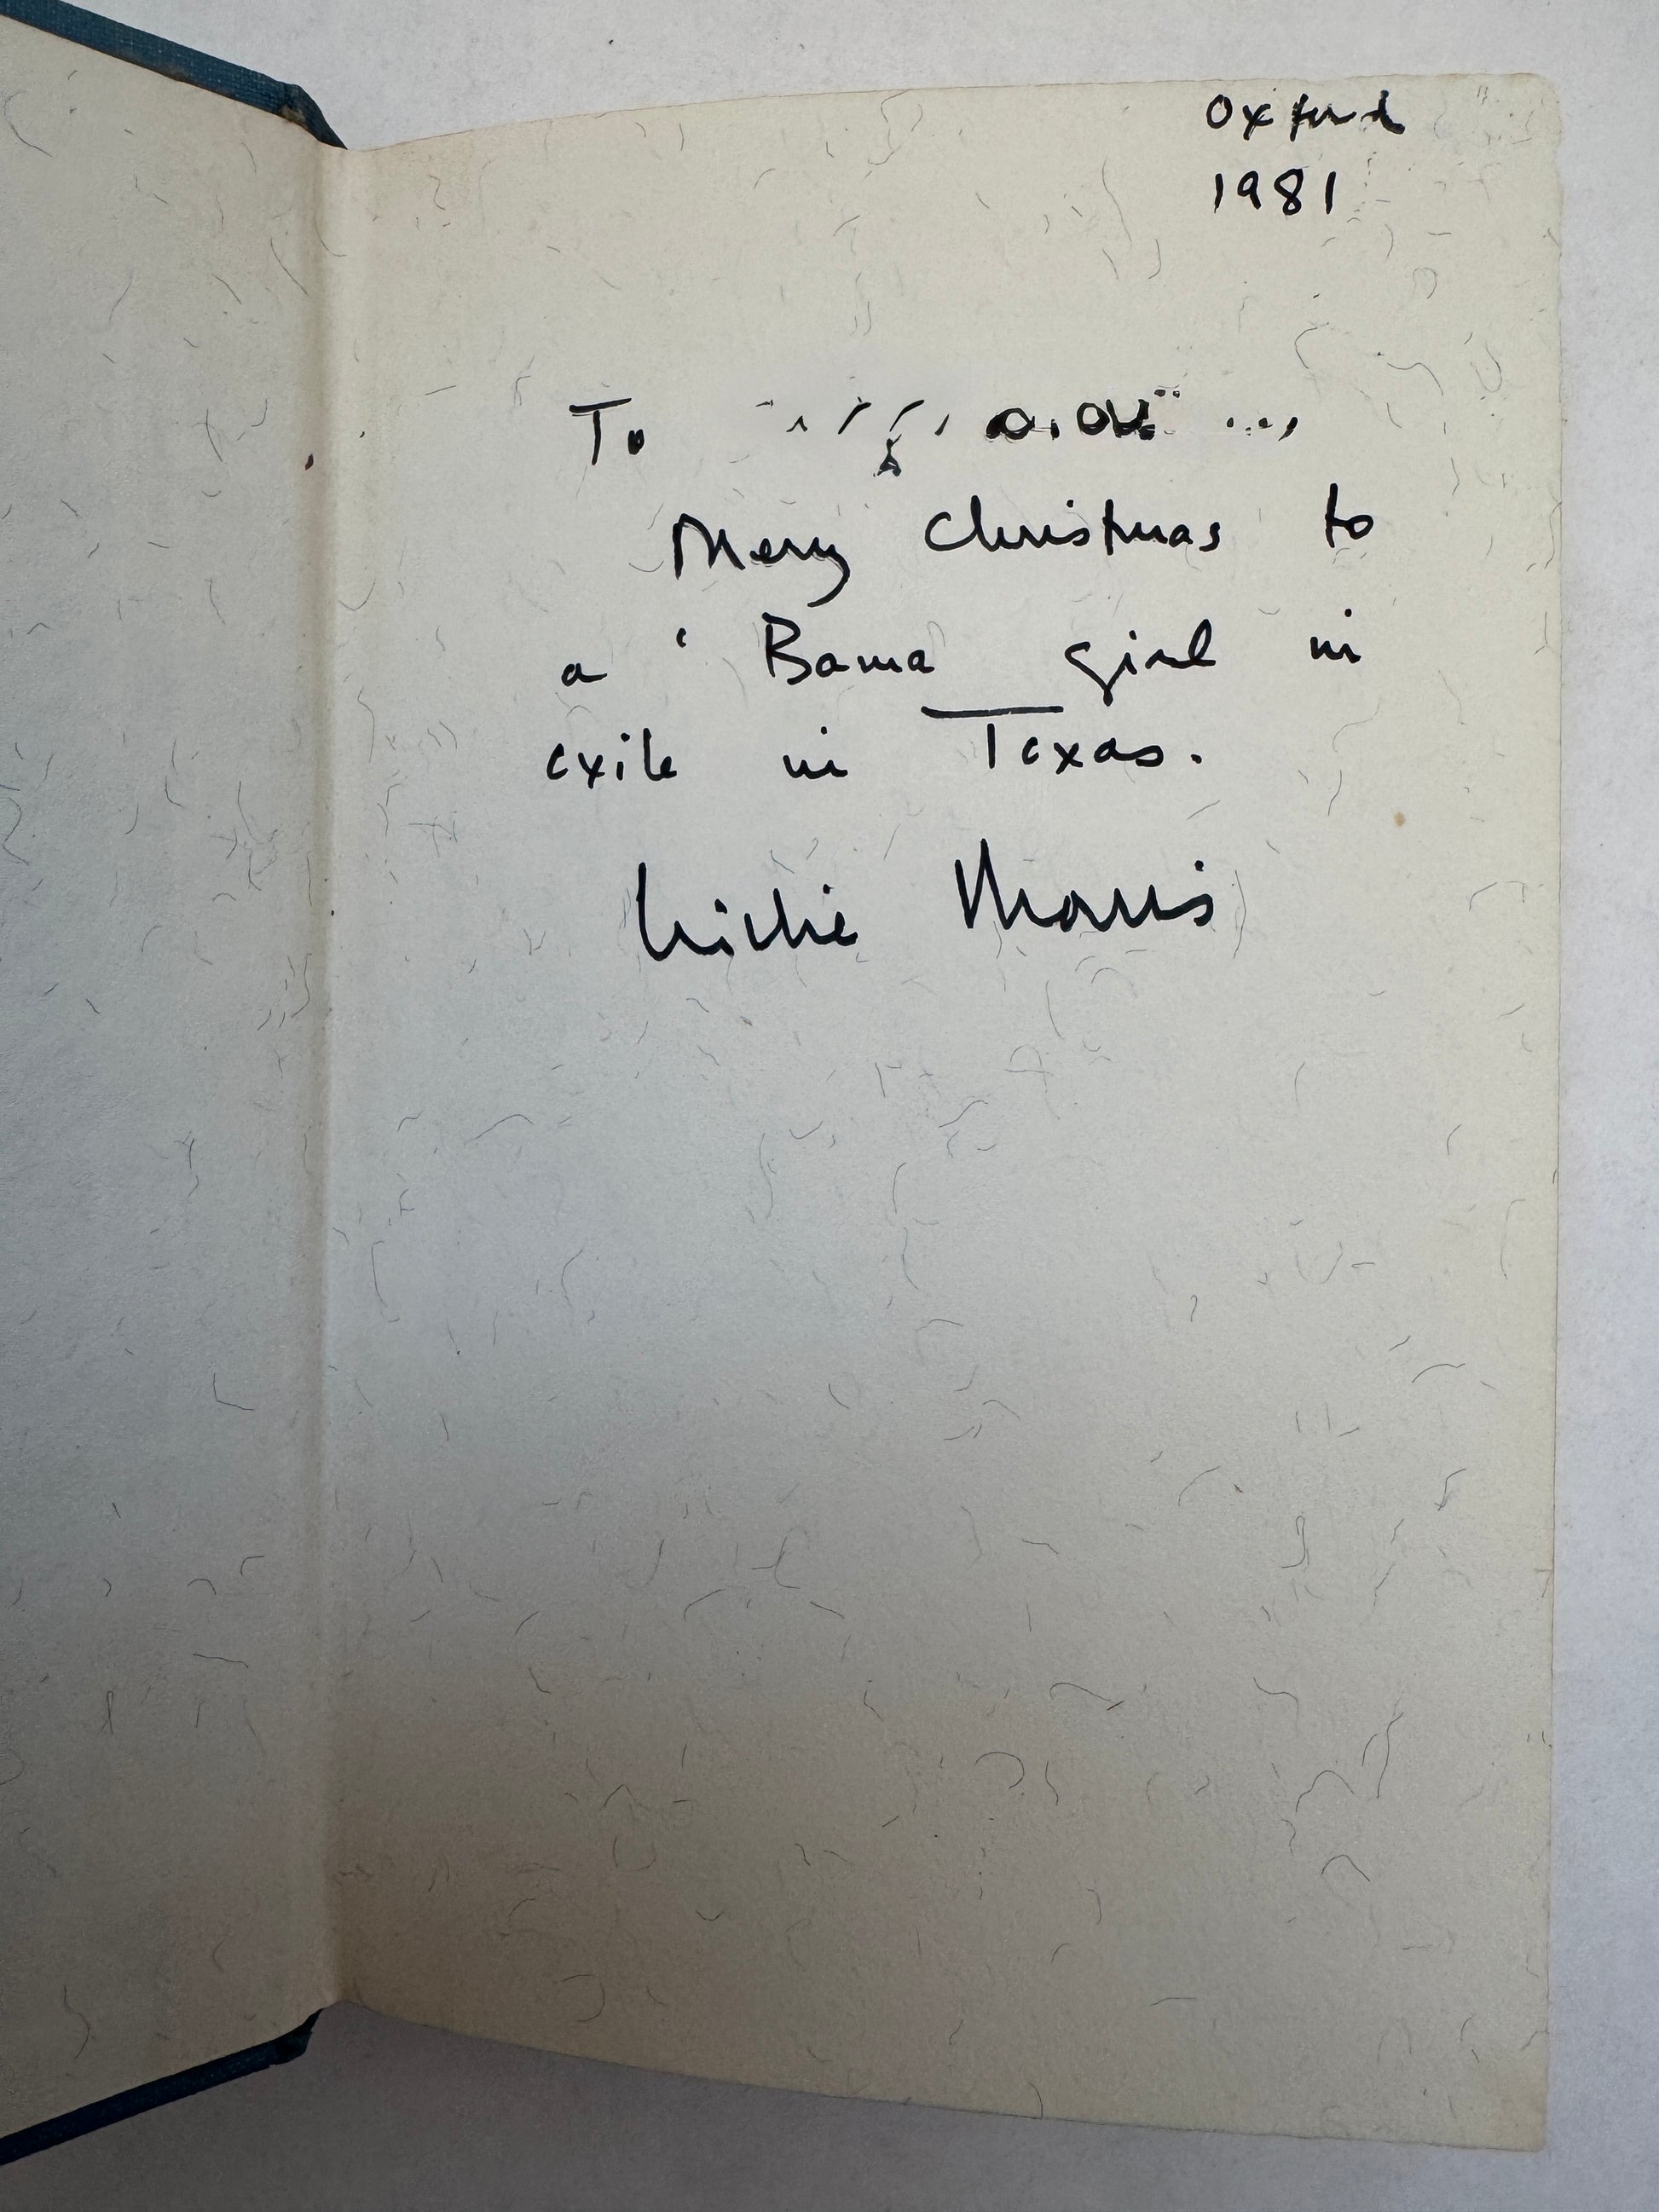 Oxford
1981
To
Merry Christmas to
a 'Bama girl in
exile in Texas.
Willie Morris